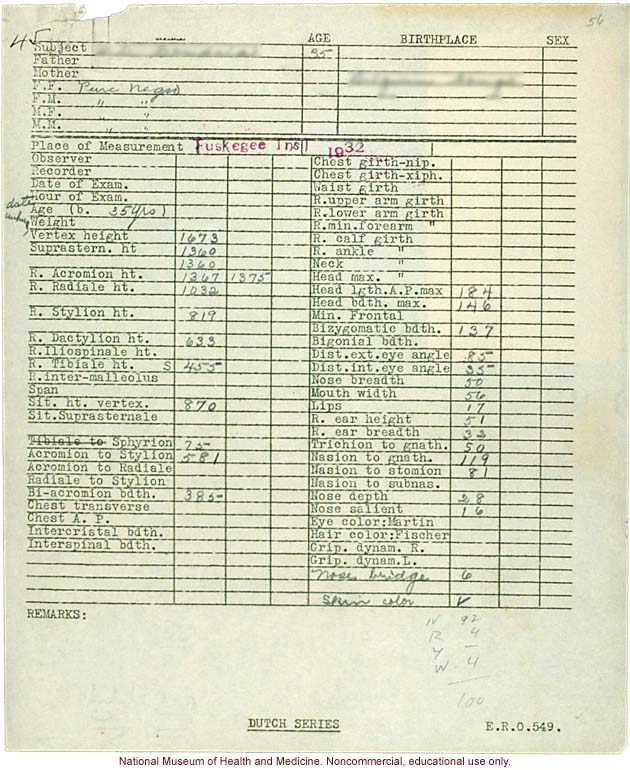 56
45
AGE BIRTHPLACE SEX
Subject 35
Father
Mother
F.F. Pure Negro
F.M. " "
M.F. " "
M.M. " "
Place of Measurement Tuskegee Ins 1932
Observer Chest girth-nip.
Recorder Chest girth-xiph.
Date of Exam. Waist girth
Hour of Exam. R.upper arm girth
Age (b. 35yrs) R.lower arm girth
Weight R.min.forearm "
Vertex height 1673 R. calf girth
Suprastern. ht 1360 R. ankle "
1360 Neck "
R. Acromion ht. 1367 1375 Head max. "
R. Radiale ht. 1032 Head lgth.A.P.max 184
Head bdth. max. 146
R. Stylion ht. 819 Min. Frontal
Bizygomatic bdth. 137
R. Dactylion ht. 633 Bigonial bdth.
R.Iliospinale ht. Dist.ext.eye angle 85
R. Tibiale ht. S 455 Dist.int.eye angle 35
R.inter-malleolus Nose breadth 50
Span Mouth width 56
Sit. ht. vertex. 870 Lips 17
Sit.Suprasternale R. ear height 51
R. ear breadth 32
Tibiale to Sphyrion 75 Trichion to gnath. 50
Acromion to Stylion 581 Nasion to gnath. 119
Acromion to Radiale Nasion to stomion 81
Radiale to Stylion Nasion to subnas.
Bi-acromion bdth. 385 Nose depth 28
Chest transverse Nose salient 16
Chest A. P. Eye color:Martin
Intercristal bdth. Hair color:Fischer
Interspinal bdth. Grip. dynam. R.
Grip. dynam.L.
Nose bridge 6
Skin color ✓
REMARKS:
N 92
R 4
Y –
W. 4
100
DUTCH SERIES E.R.O.549.
National Museum of Health and Medicine. Noncommercial, educational use only.